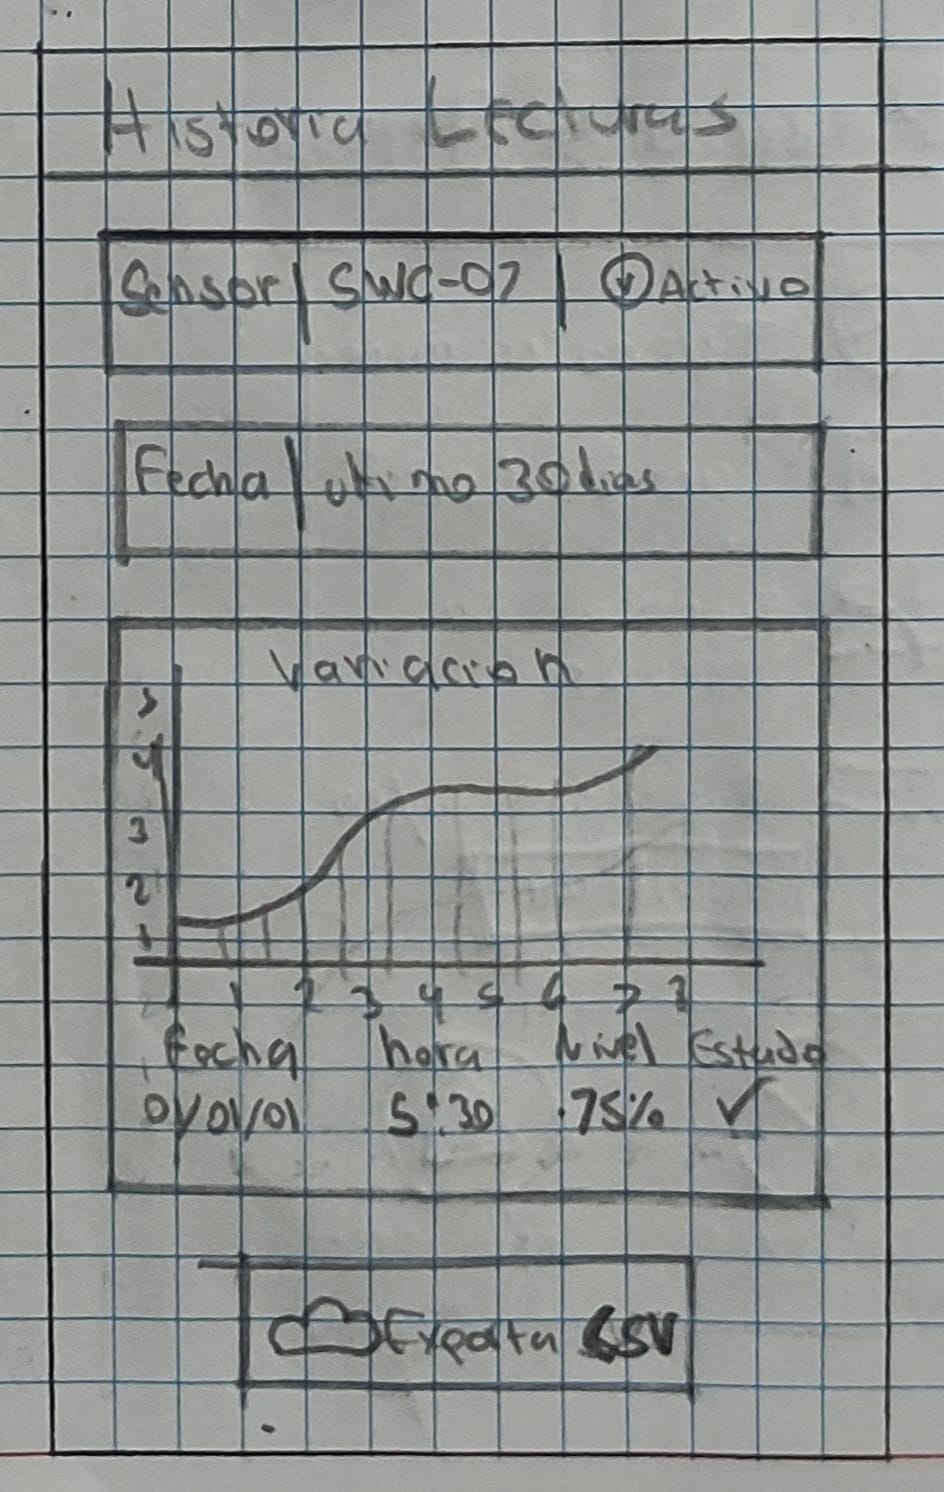 Historia Lecturas
Sensor | SWC-07 | Activo
Fecha | ultimo 30 dias
Variacion
5
4
3
2
1
1 2 3 4 5 6 7 8
Fecha hora Nivel Estado
01/01/01 5:30 75% ✓
Exportar CSV